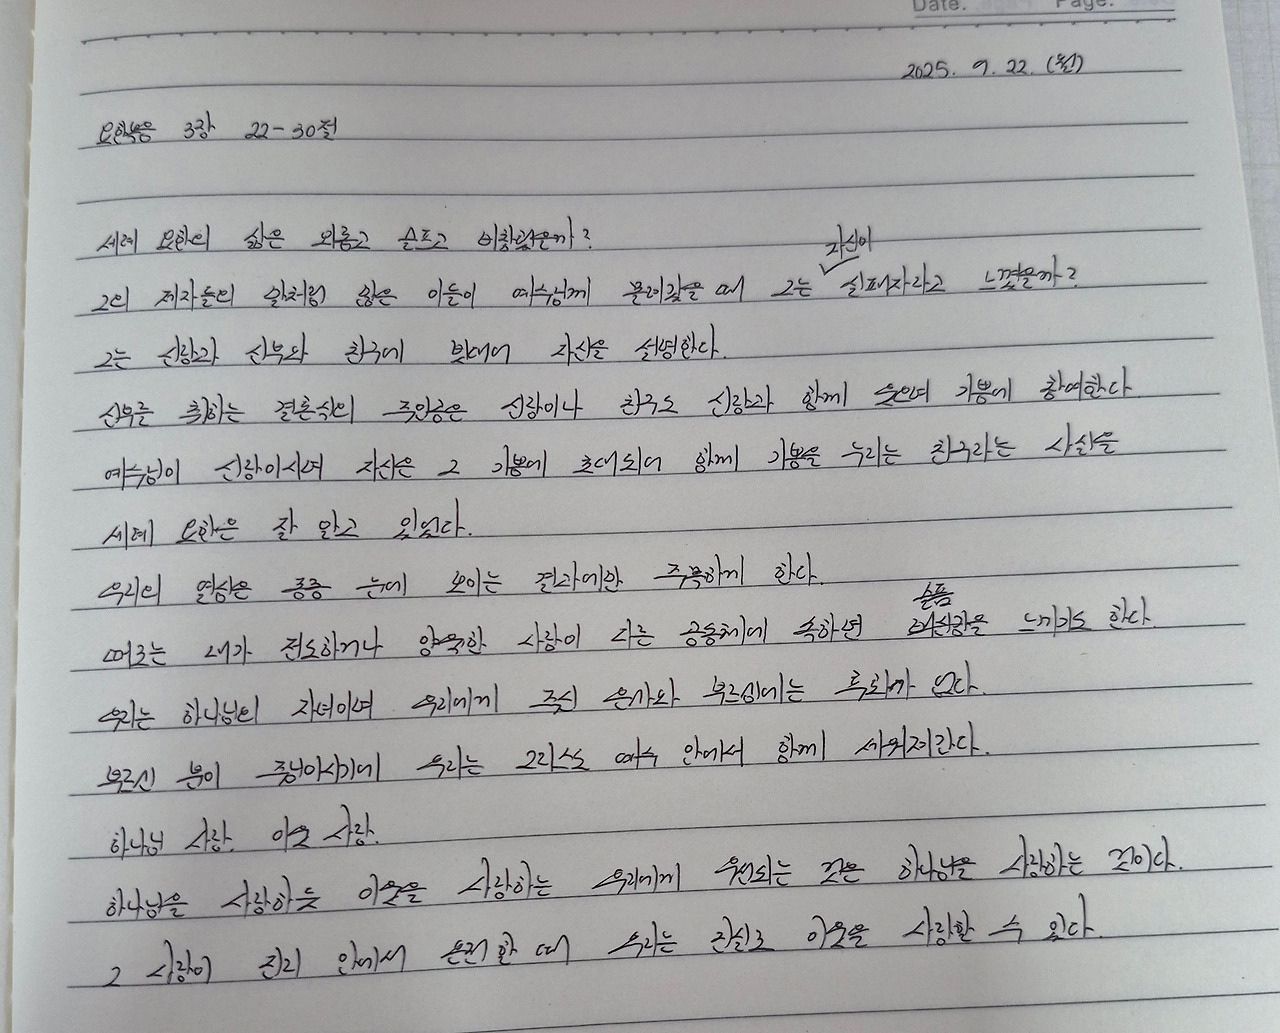 Date. Page.
2025. 9. 22. (월)
요한복음 3장 22-30절
세례 요한의 삶은 외롭고 슬프고 비참했을까?
자신이
그의 제자들의 말처럼 많은 이들이 예수님께 몰려갔을 때 그는 실패자라고 느꼈을까?
그는 신랑과 신부와 친구에 빗대어 자신을 설명한다.
신부를 취하는 결혼식의 주인공은 신랑이나 친구도 신랑과 함께 웃으며 기쁨에 참여한다
예수님이 신랑이시며 자신은 그 기쁨에 초대되어 함께 기쁨을 누리는 친구라는 사실을
세례 요한은 잘 알고 있었다.
우리의 열심은 종종 눈에 보이는 결과에만 주목하게 한다.
슬픔
때로는 내가 전도하거나 양육한 사람이 다른 공동체에 속하면 을 느끼기도 한다
우리는 하나님의 자녀이며 우리에게 주신 은사와 부르심에는 후회가 없다.
부르신 분이 주님이시기에 우리는 그리스도 예수 안에서 함께 세워져간다.
하나님 사랑. 이웃 사랑.
하나님을 사랑하듯 이웃을 사랑하는 우리에게 우선되는 것은 하나님을 사랑하는 것이다.
그 사랑이 진리 안에서 온전할 때 우리는 진실로 이웃을 사랑할 수 있다.